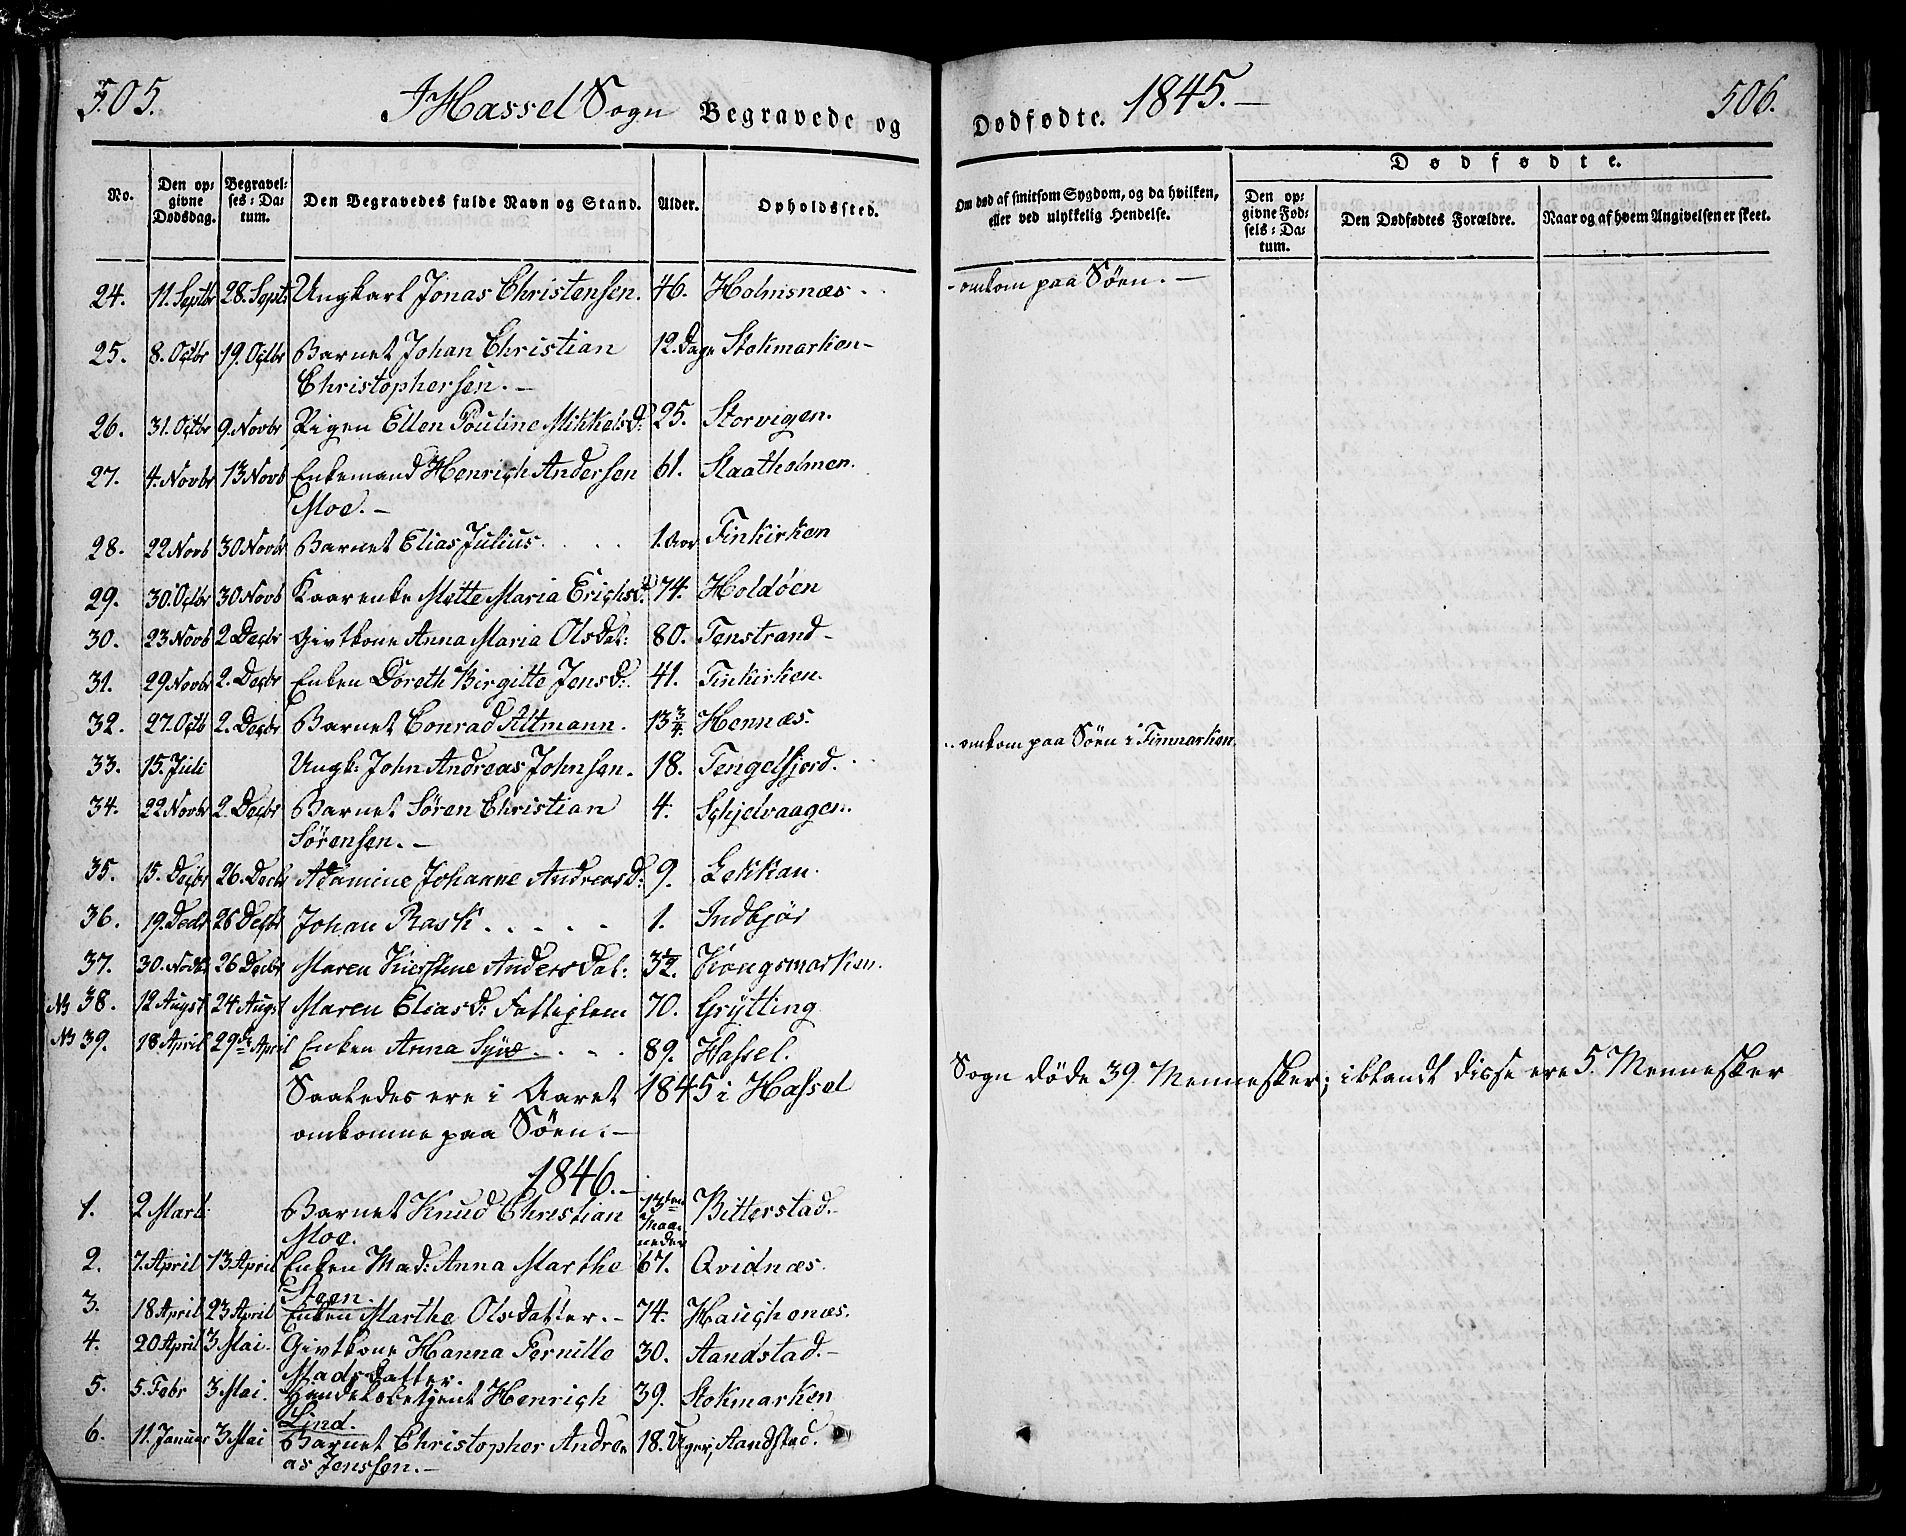 505.
I Hassel Sogn Begravede og
Dødfødte. 1845.—
506.
No.
Den op-
givne
Dødsdag.
Begravel-
ses-Da-
tum.
Den Begravedes fulde Navn og Stand.
Alder.
Opholdssted.
Om død af smitsom Sygdom, og da hvilken,
eller ved ulykkelig Hendelse.
Dødfødte.
Den op-
givne Fød-
sels-Da-
tum.
Den Dødfødtes Forældre.
Naar og af hvem Angivelsen er skeet.
24. 11. Septbr 28. Septb Ungkarl Jonas Christensen. 46. Holmsnæs - omkom paa Søen. —
25. 8. Octbr 19. Octbr Barnet Johan Christian 12. Dage Stokmarken -
Christophersen. —
26. 31. Octbr 9. Novbr Pigen Ellen Pouline MikkelsD: 25. Storvigen.
27. 4. Novbr 13 Novb Enkemand Henrich Andersen 61. Slaatholmen.
Moe. —
28. 22 Novb 30 Novbr Barnet Elias Julius. . . . 1. Aar Finkirken
29. 30. Octbr 30 Novb Kaarenke Mette Maria Erichsd: 74. Holdøen
30. 23 Novb 2 Decbr Givtkone Anna Maria Olsdat: 80. Fenstrand -
31. 29 Novbr 2. Decbr Enken Doreth Birgitte Jensd: 41. Finkirken.
32. 27. Octb 2. Decbr Barnet Conrad Altmann. 13 3/4. Hennæs.
33. 15. Juli Ungk: John Andreas Johnsen. 18. Tengelfjord. . . omkom paa Søen i Finmarken
34. 22 Novbr 2. Decbr Barnet Søren Christian 4. Schjelvaagen.
Sørensen. —
35. 15. Decbr 26. Decb Adamine Johanne Andreasd: 9. Lekkan.
36. 19. Decbr 26 Decbr Johan Rask . . . . . 1. Indbjør
37. 30. Novb 26 Decbr Maren Kierstine Andersdat: 32. Kongsmarken.
NB 38. 12 Augst 24 Augst Maren Eliasd: Fattiglem 70. Grytting
NB 39. 18 April 29de April Enken Anna Syve. . . . 89. Hassel.
Saaledes ere i Aaret 1845 i Hassel Sogn døde 39. Mennesker; iblandt disse ere 5. Mennesker
omkomne paa Søen. —
1846. —
1. 2 Marti Barnet Knud Christian 13ten Bitterstad. -
Moe. Maa-
neder
2. 7. April 13. April Enken Mad: Anna Marthe 67. Qvidnæs.
Steen.
3. 18 April 23 April Enken Marthe Olsdatter. - 74. Haughenæs.
4. 20 April 3 Mai. Givtkone Hanna Pernille 30. Aandstad. -
Madsdatter.
5. 5. Febr 3 Mai. Handelsbetjent Henrich 39. Stokmarken
Lind.
6. 11. Januar 3 Mai Barnet Christopher Andre- 18. Uger, Aandstad.
as Jenssen. —